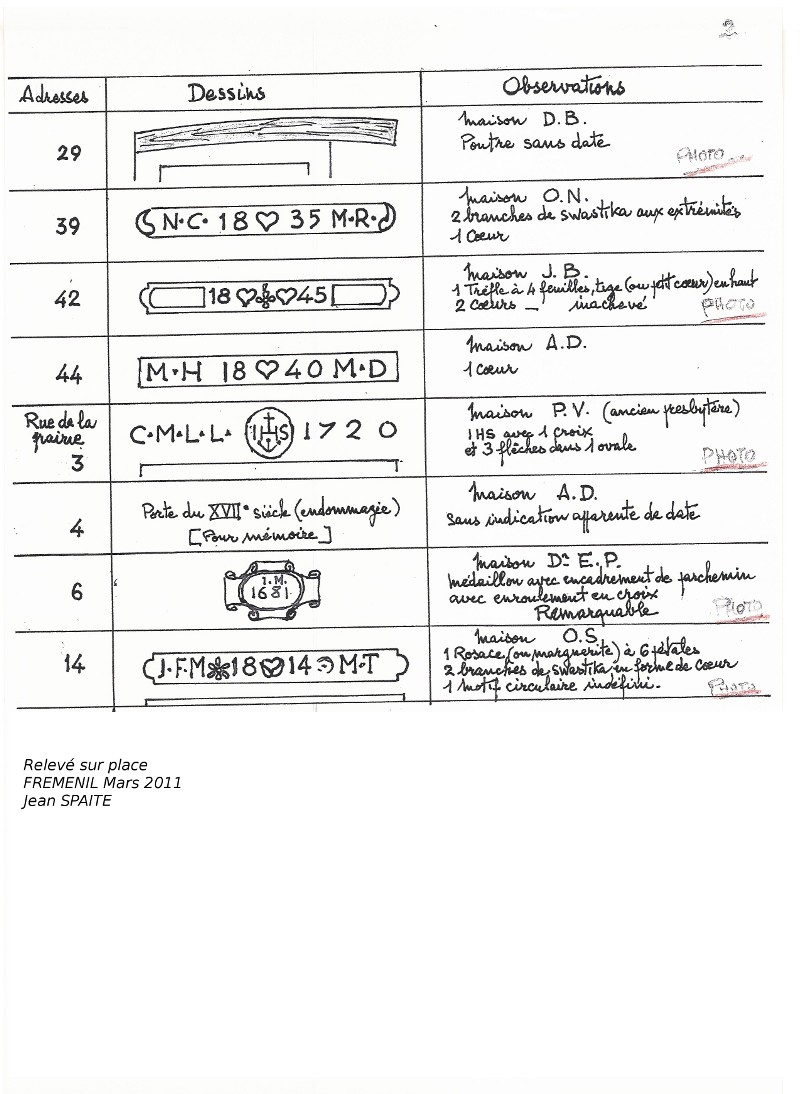 2
Adresses Dessins Observations
29
Maison D.B.
Poutre sans date
PHOTO
39
N·C· 18 35 M·R·
Maison O.N.
2 branches de swastika aux extrémités
1 Cœur
42
18 45
Maison J.B.
1 Trèfle à 4 feuilles, tige (ou petit cœur) en haut
2 cœurs _ inachevé
PHOTO
44
M·H 18 40 M·D
Maison A.D.
1 cœur
Rue de la
prairie
3
C·M·L·L· IHS 1720
Maison P.V. (ancien presbytère)
IHS avec 1 croix
et 3 flèches dans 1 ovale
PHOTO
4
Porte du XVIIe siècle (endommagée)
[Pour mémoire]
Maison A.D.
sans indication apparente de date
6
I.M.
1681
Maison Dr E.P.
médaillon avec encadrement de parchemin
avec enroulement en croix
Remarquable
PHOTO
14
J.F.M 18 14 M·T
Maison O.S.
1 Rosace (ou marguerite) à 6 pétales
2 branches de swastika, en forme de cœur
1 motif circulaire indéfini.
PHOTO
Relevé sur place
FREMENIL Mars 2011
Jean SPAITE